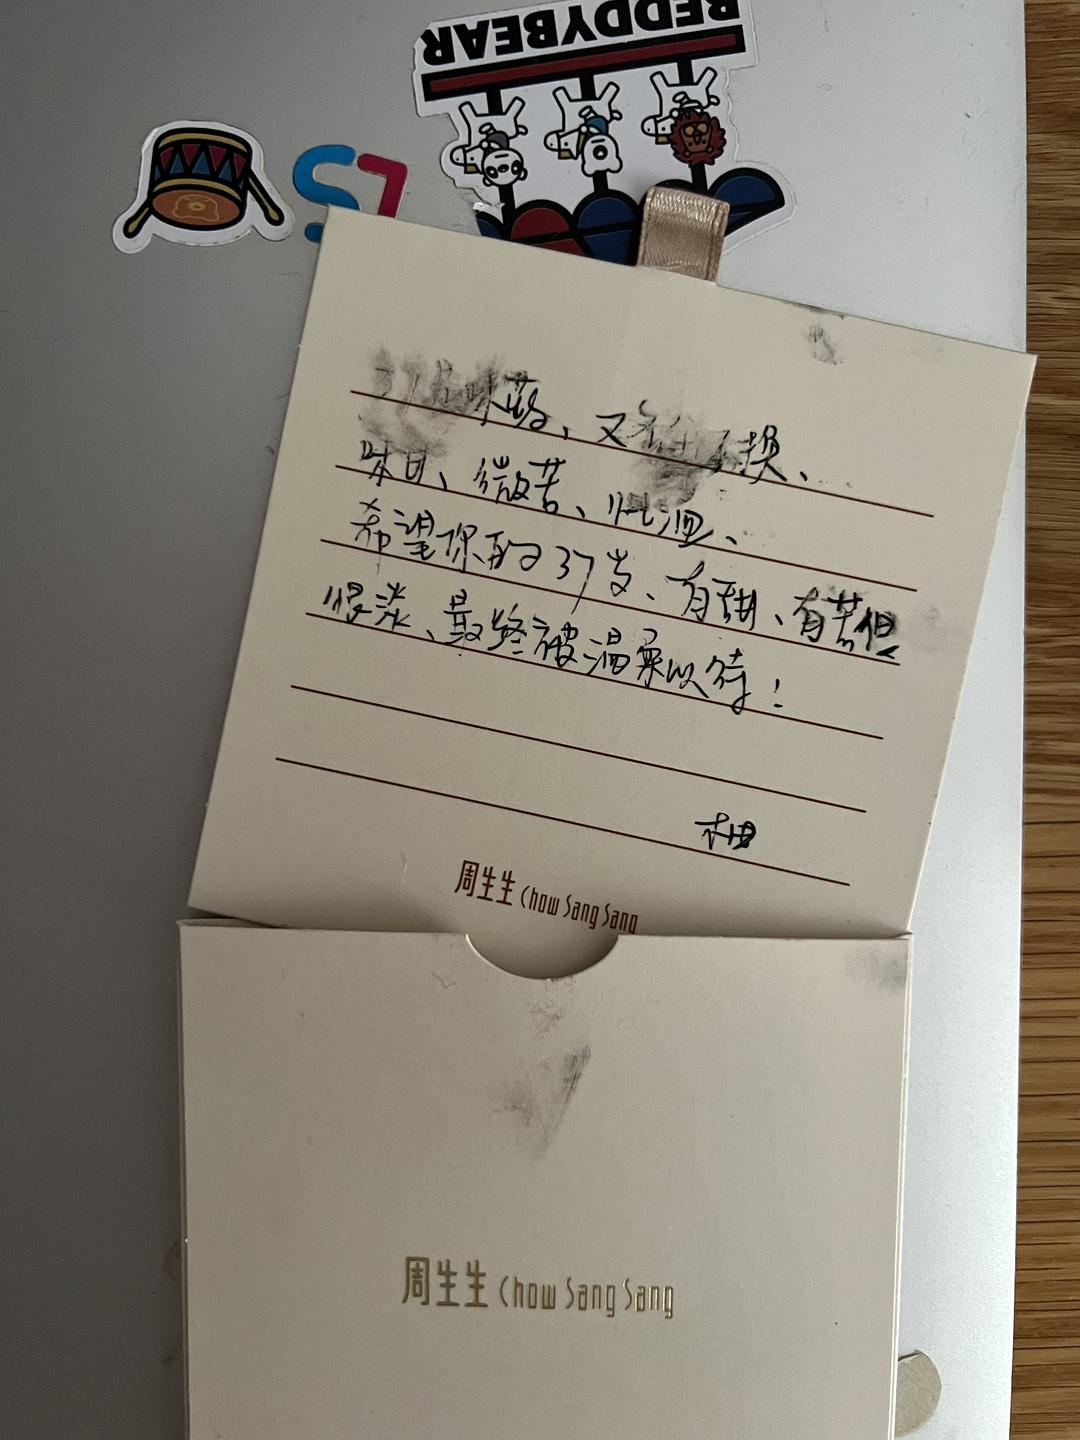 BEDDYBEAR
LS
37片味药、又名金不换、
味甘、微苦、性温、
希望你的37岁、有甜、有苦但
很淡、最终被温柔以待！
柚
周生生 Chow Sang Sang
周生生 Chow Sang Sang